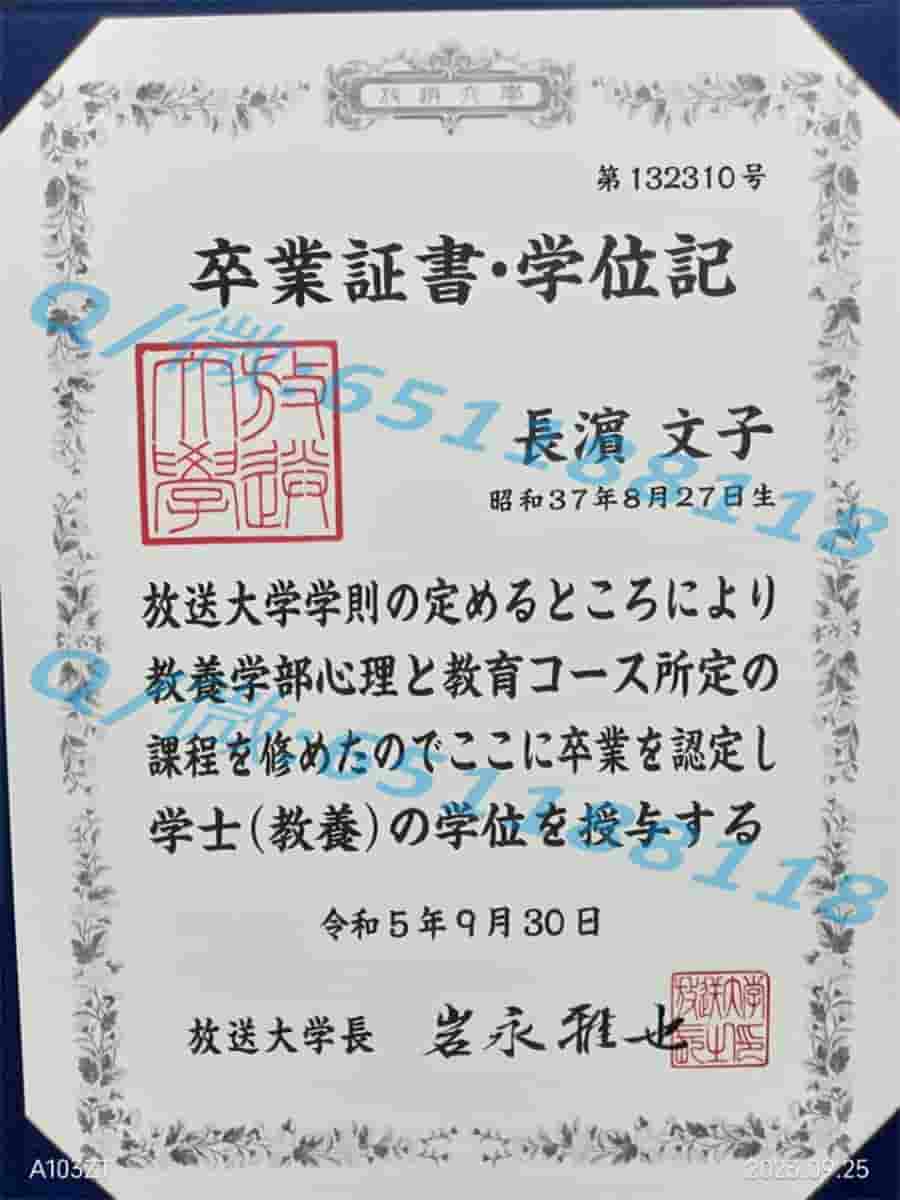 放送大學
第132310号
卒業証書・学位記
放送大學
長濵 文子
昭和37年8月27日生
放送大学学則の定めるところにより
教養学部心理と教育コース所定の
課程を修めたのでここに卒業を認定し
学士(教養)の学位を授与する
令和5年9月30日
放送大学長 岩永雅也
放送大学
Q/微:651188118
Q/微:651188118
A103ZT
2025.09.25